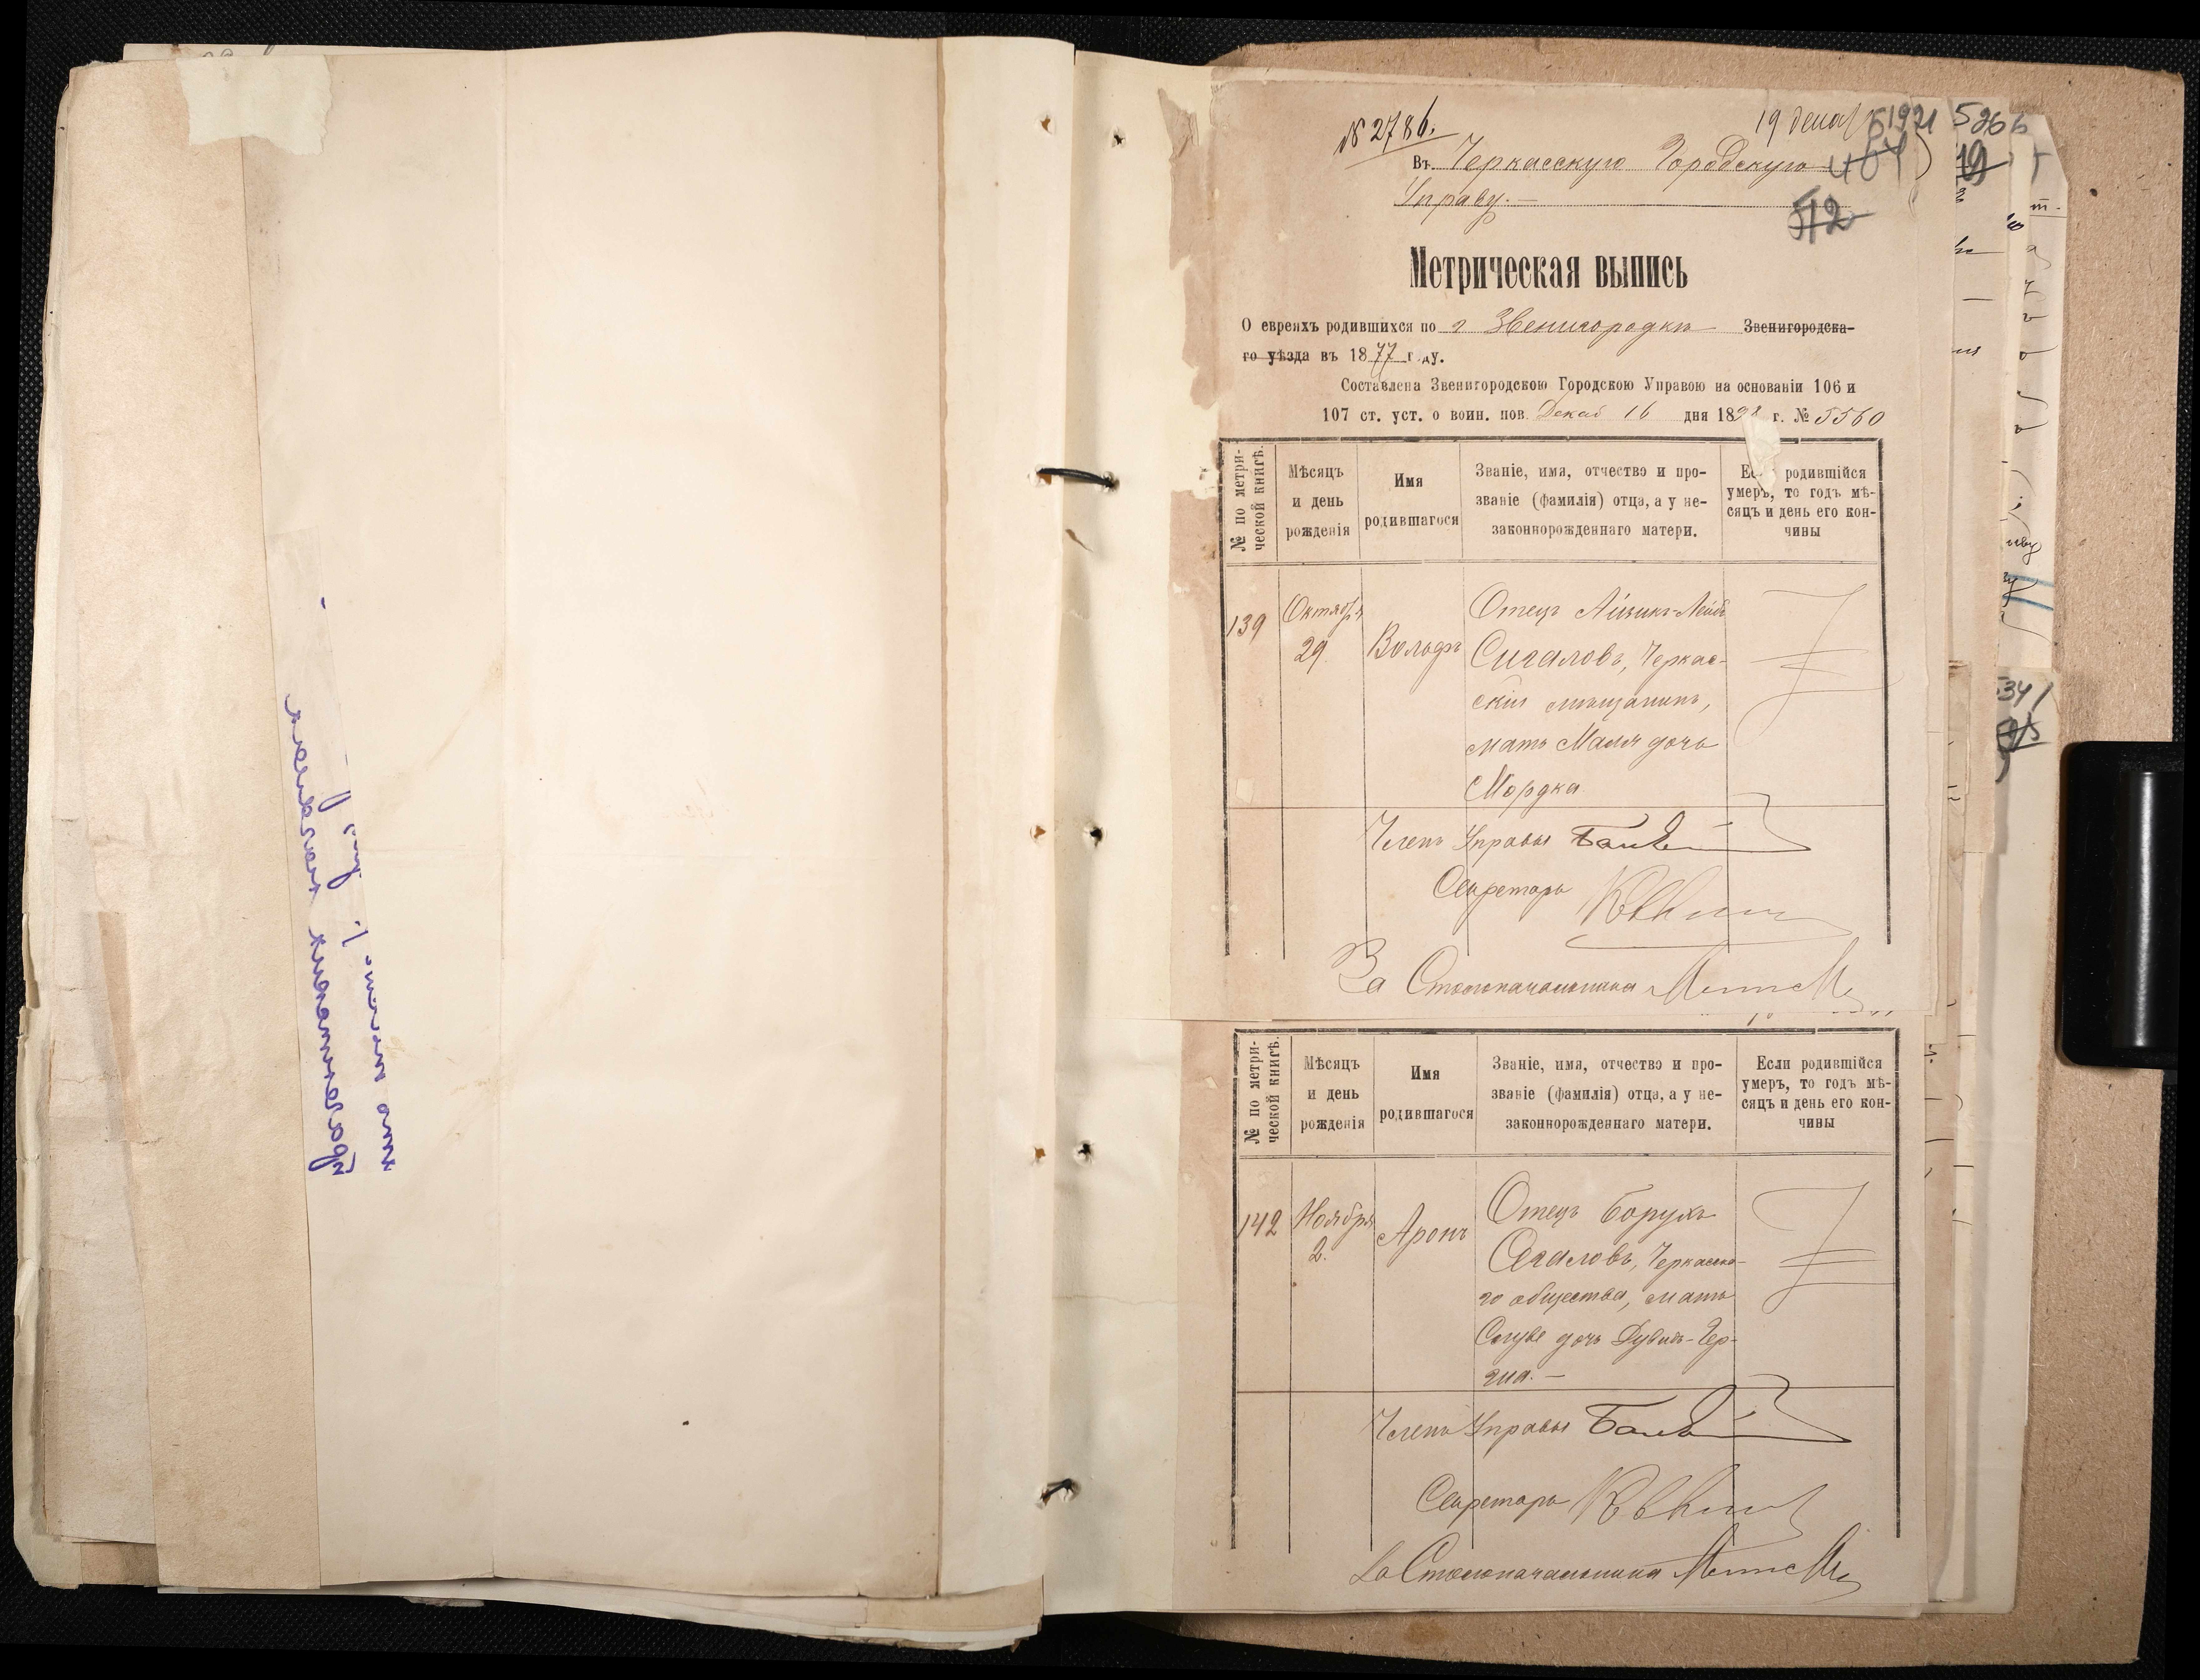 № 2786.
19 декаб
51921
5266
Въ Черкасскую Городскую
407
Управу. —
512
Метрическая выпись
О евреяхъ родившихся по г Звенигородкѣ Звенигородска-
го уѣзда въ 1877 году.
Составлена Звенигородскою Городскою Управою на основаніи 106 и
107 ст. уст. о воин. пов. Декаб 16 дня 1898 г. № 5560
№ по метри-
ческой книгѣ.
Мѣсяцъ
и день
рожденія
Имя
родившагося
Званіе, имя, отчество и про-
званіе (фамилія) отца, а у не-
законнорожденнаго матери.
Если родившійся
умеръ, то годъ мѣ-
сяцъ и день его кон-
чины
139
Октября
29
Вольфъ
Отецъ Айзикъ-Лейбъ
Сигаловъ, Черкас-
скій мѣщанинъ,
мать Маля дочь
Мордка
Членъ Управы
Секретарь
За Столоначальника
№ по метри-
ческой книгѣ.
Мѣсяцъ
и день
рожденія
Имя
родившагося
Званіе, имя, отчество и про-
званіе (фамилія) отца, а у не-
законнорожденнаго матери.
Если родившійся
умеръ, то годъ мѣ-
сяцъ и день его кон-
чины
142
Ноября
2.
Аронъ
Отецъ Борухъ
Сегаловъ, Черкасска-
го общества, мать
дочь Дувидъ-Гер-
Членъ Управы
Секретарь
За Столоначальника